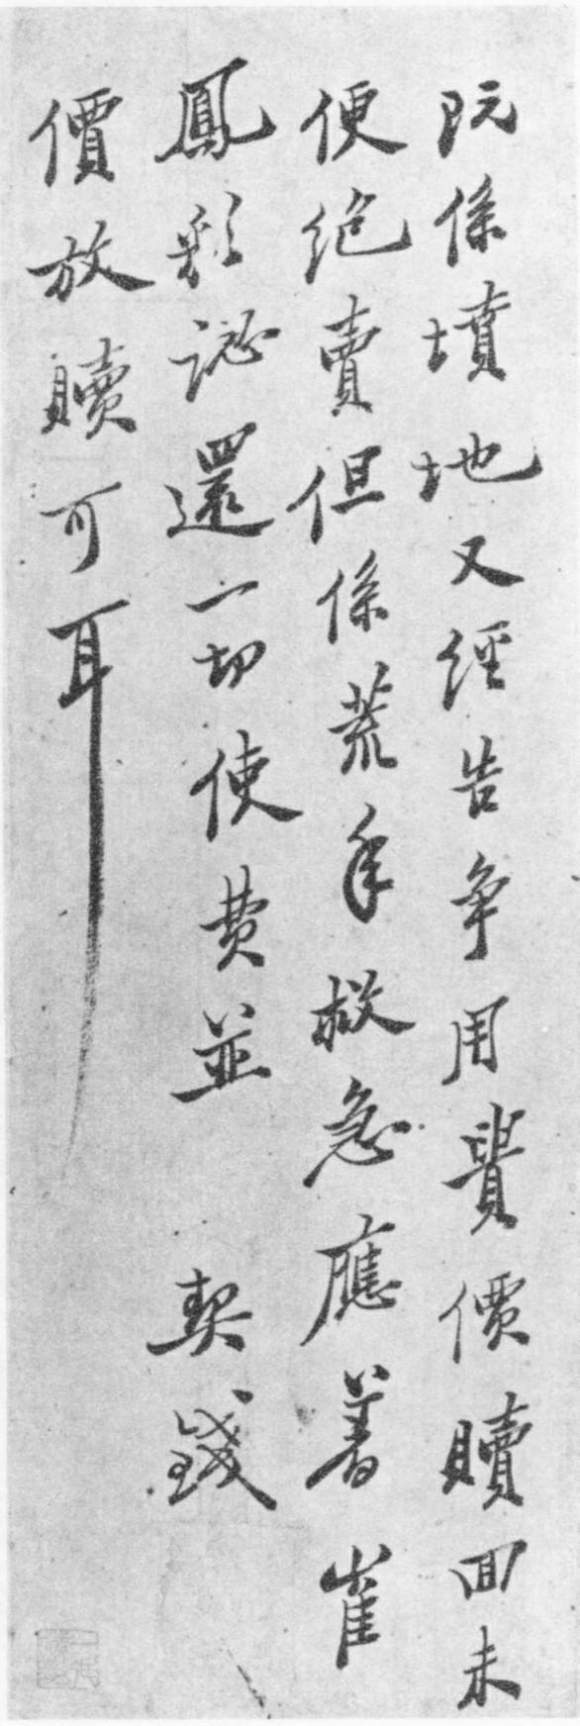 既係墳地又經告爭用貴價贖回未
便絕賣但係荒年救急應著崔
鳳彩認還一切使費並 契錢
價放贖可耳